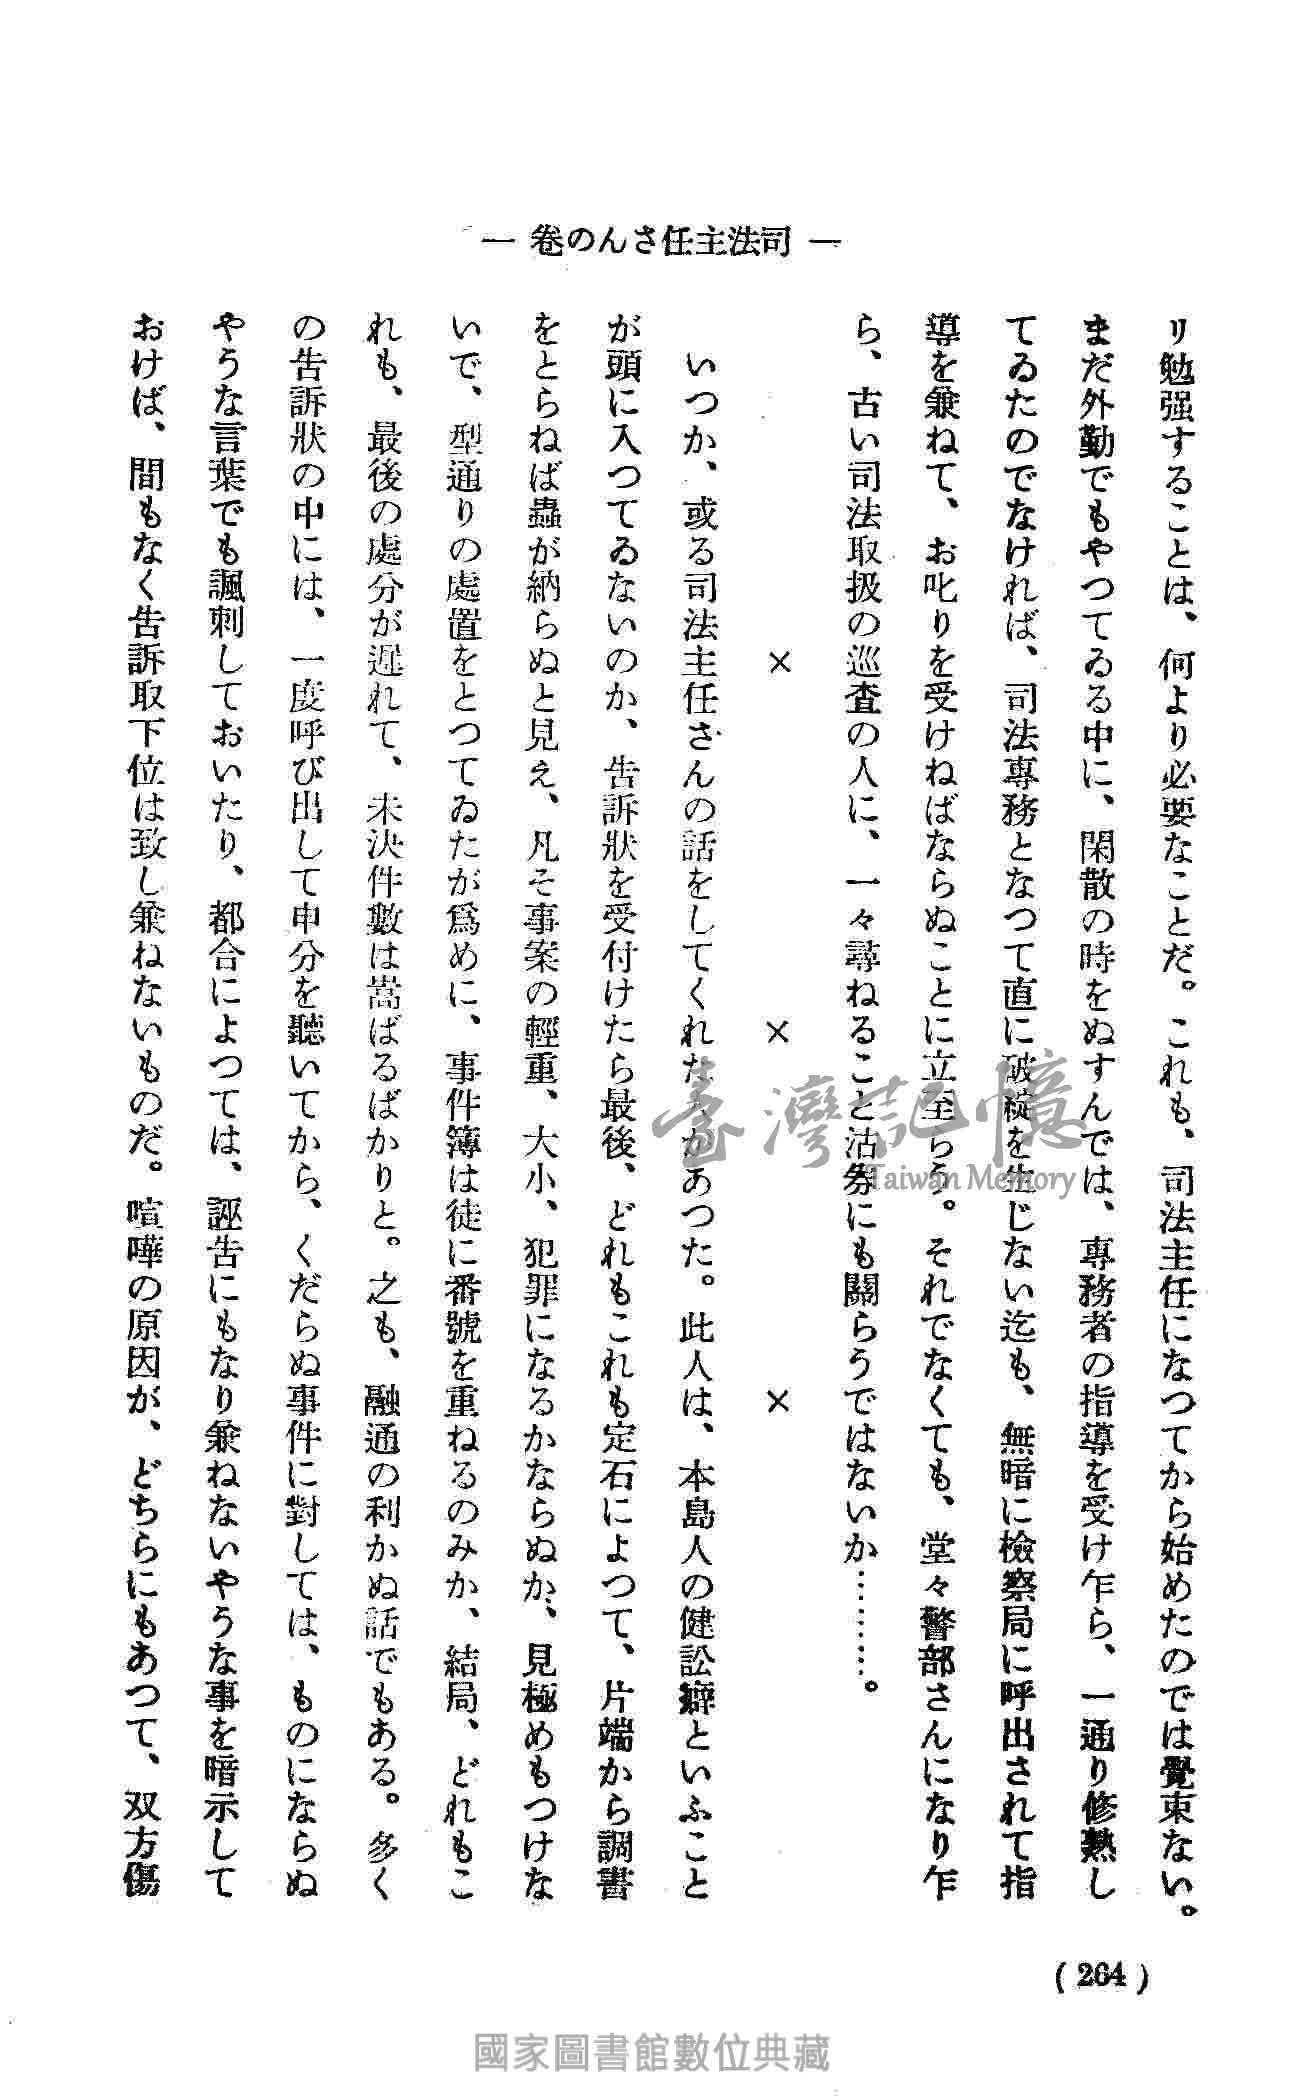 — 司法主任さんの卷 —
り勉强することは、何より必要なことだ。これも、司法主任になつてから始めたのでは覺束ない。
まだ外勤でもやつてゐる中に、閑散の時をぬすんでは、專務者の指導を受け乍ら、一通り修熟し
てゐたのでなければ、司法專務となつて直に破綻を生じない迄も、無暗に檢察局に呼出されて指
導を兼ねて、お叱りを受けねばならぬことに立至らう。それでなくても、堂々警部さんになり乍
ら、古い司法取扱の巡査の人に、一々尋ねること沽券にも關らうではないか………。
× × ×
いつか、或る司法主任さんの話をしてくれた人があつた。此人は、本島人の健訟癖といふこと
が頭に入つてゐないのか、告訴狀を受付けたら最後、どれもこれも定石によつて、片端から調書
をとらねば蟲が納らぬと見え、凡そ事案の輕重、大小、犯罪になるかならぬか、見極めもつけな
いで、型通りの處置をとつてゐたが爲めに、事件簿は徒に番號を重ねるのみか、結局、どれもこ
れも、最後の處分が遲れて、未決件數は嵩ばるばかりと。之も、融通の利かぬ話でもある。多く
の告訴狀の中には、一度呼び出して申分を聽いてから、くだらぬ事件に對しては、ものにならぬ
やうな言葉でも諷刺しておいたり、都合によつては、誣告にもなり兼ねないやうな事を暗示して
おけば、間もなく告訴取下位は致し兼ねないものだ。喧嘩の原因が、どちらにもあつて、双方傷
( 264 )
臺灣記憶
Taiwan Memory
國家圖書館數位典藏